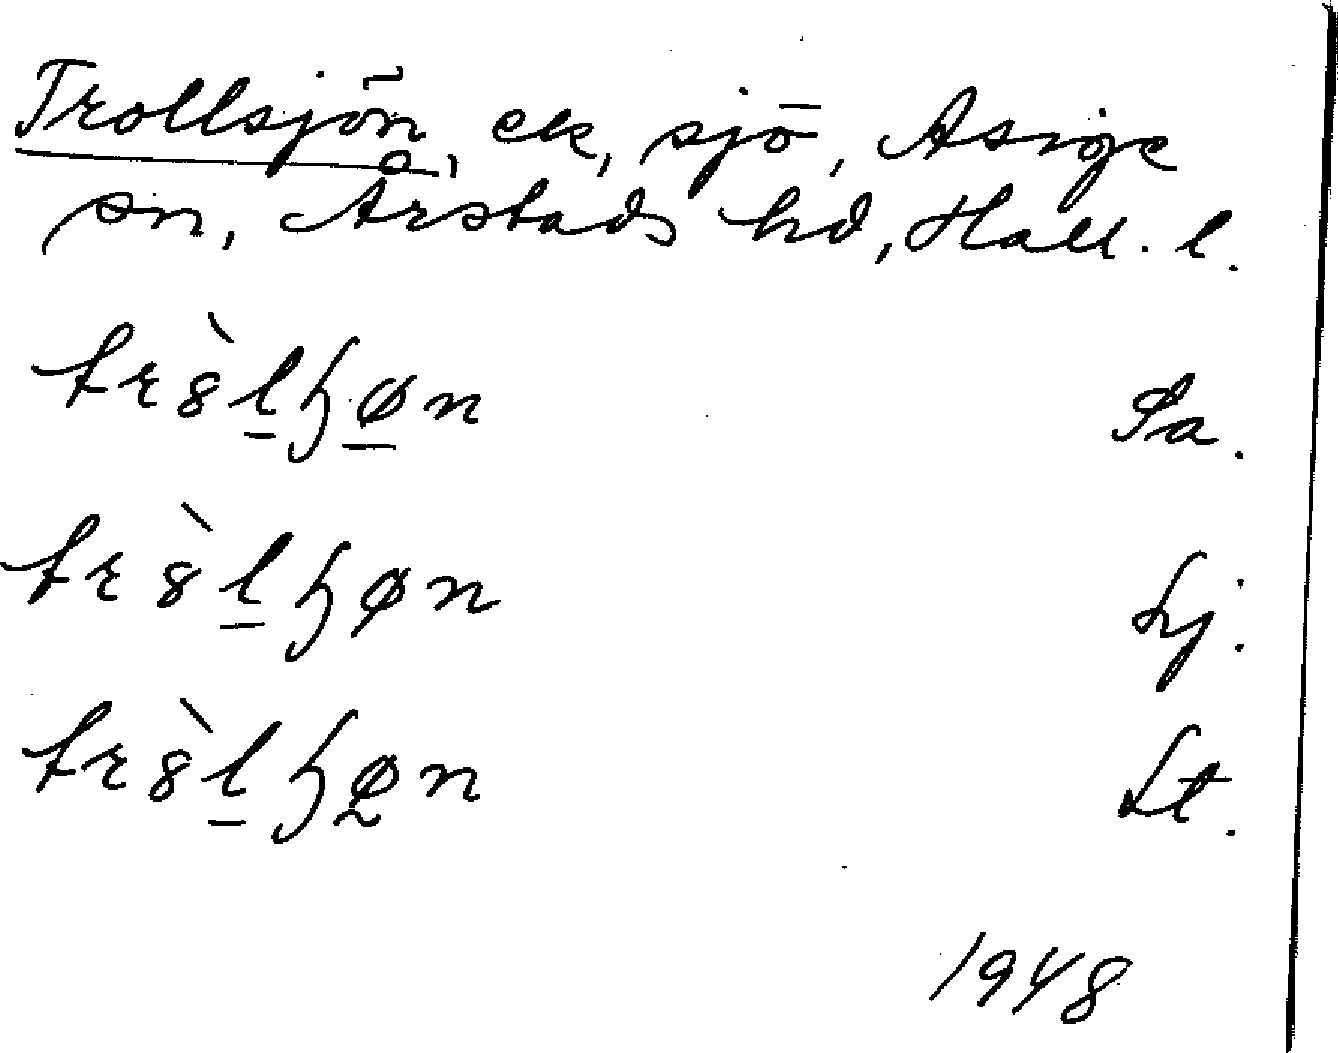 Trollsjön, ek, sjö, Asige
sn, Årstads hd, Hall. l.
trȣ̀l̠ɧø̠n Sa.
trȣ̀l̠ɧøn Lj.
trȣ̀l̠ɧø̰n Lt.
1948